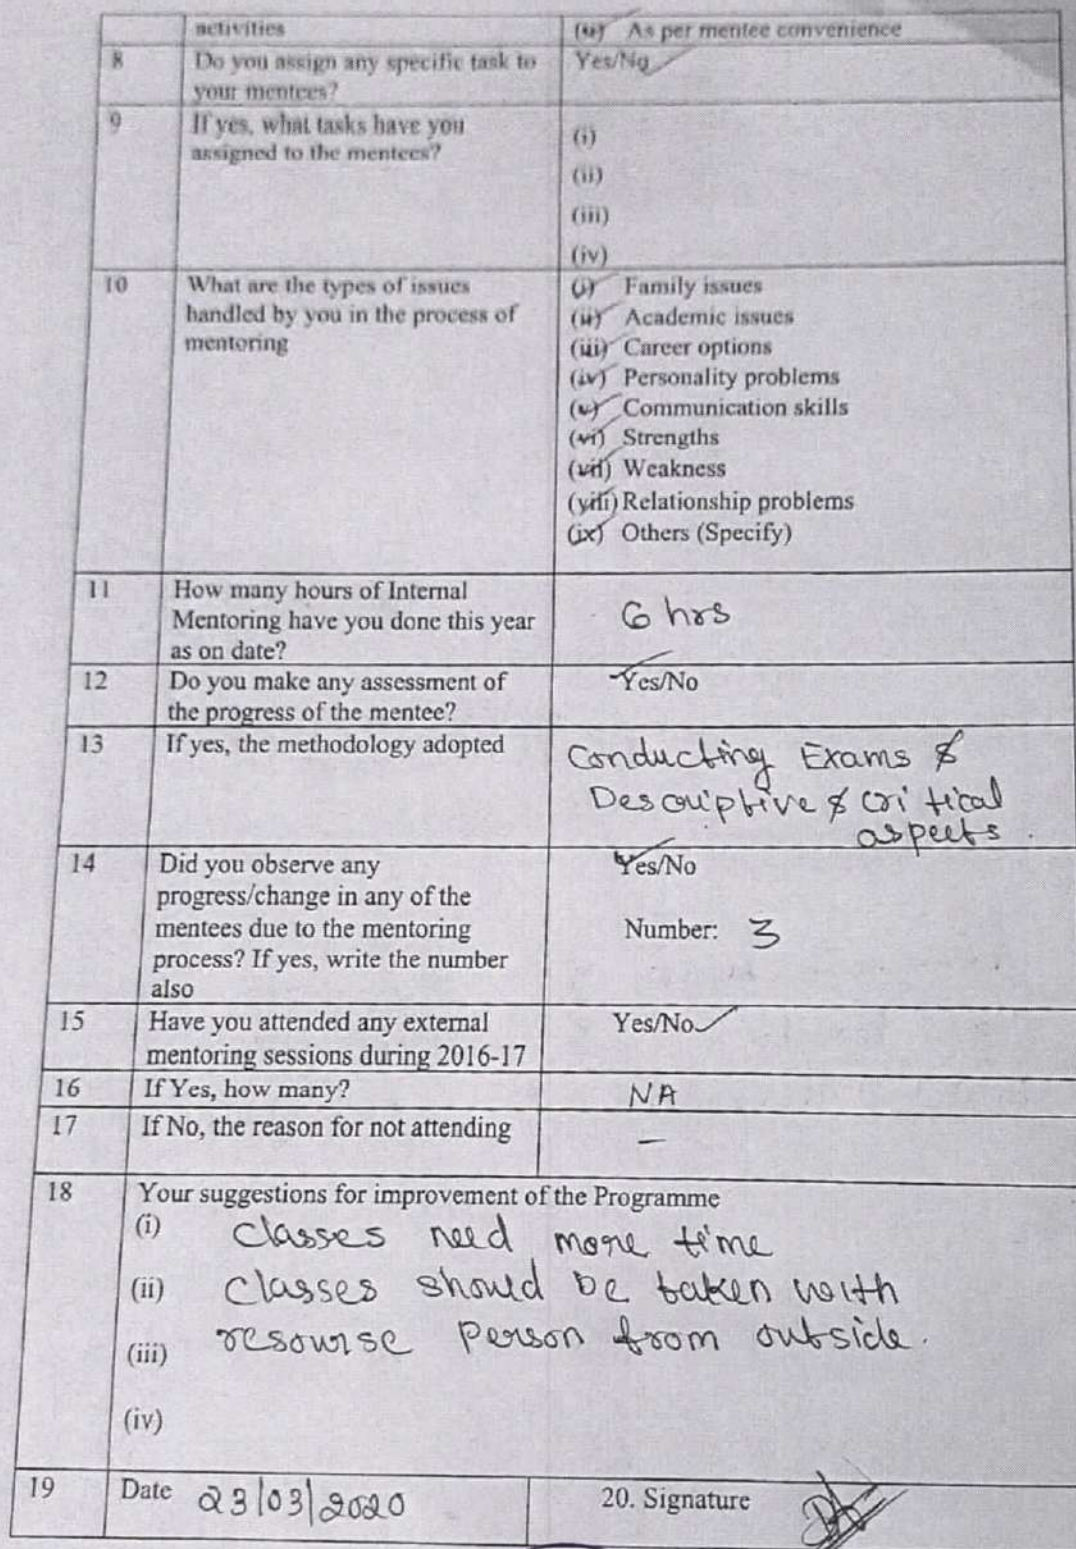 activities (v) As per mentee convenience
8 Do you assign any specific task to Yes/No
your mentees?
9 If yes, what tasks have you
assigned to the mentees?
(i)
(ii)
(iii)
(iv)
10 What are the types of issues (i) Family issues
handled by you in the process of (ii) Academic issues
mentoring (iii) Career options
(iv) Personality problems
(v) Communication skills
(vi) Strengths
(vii) Weakness
(viii) Relationship problems
(ix) Others (Specify)
11 How many hours of Internal
Mentoring have you done this year 6 hrs
as on date?
12 Do you make any assessment of Yes/No
the progress of the mentee?
13 If yes, the methodology adopted Conducting Exams &
Descriptive & critical
aspects.
14 Did you observe any Yes/No
progress/change in any of the
mentees due to the mentoring Number: 3
process? If yes, write the number
also
15 Have you attended any external Yes/No
mentoring sessions during 2016-17
16 If Yes, how many? NA
17 If No, the reason for not attending –
18 Your suggestions for improvement of the Programme
(i) classes need more time
(ii) classes should be taken with
(iii) resourse person from outside.
(iv)
19 Date 23/03/2020 20. Signature